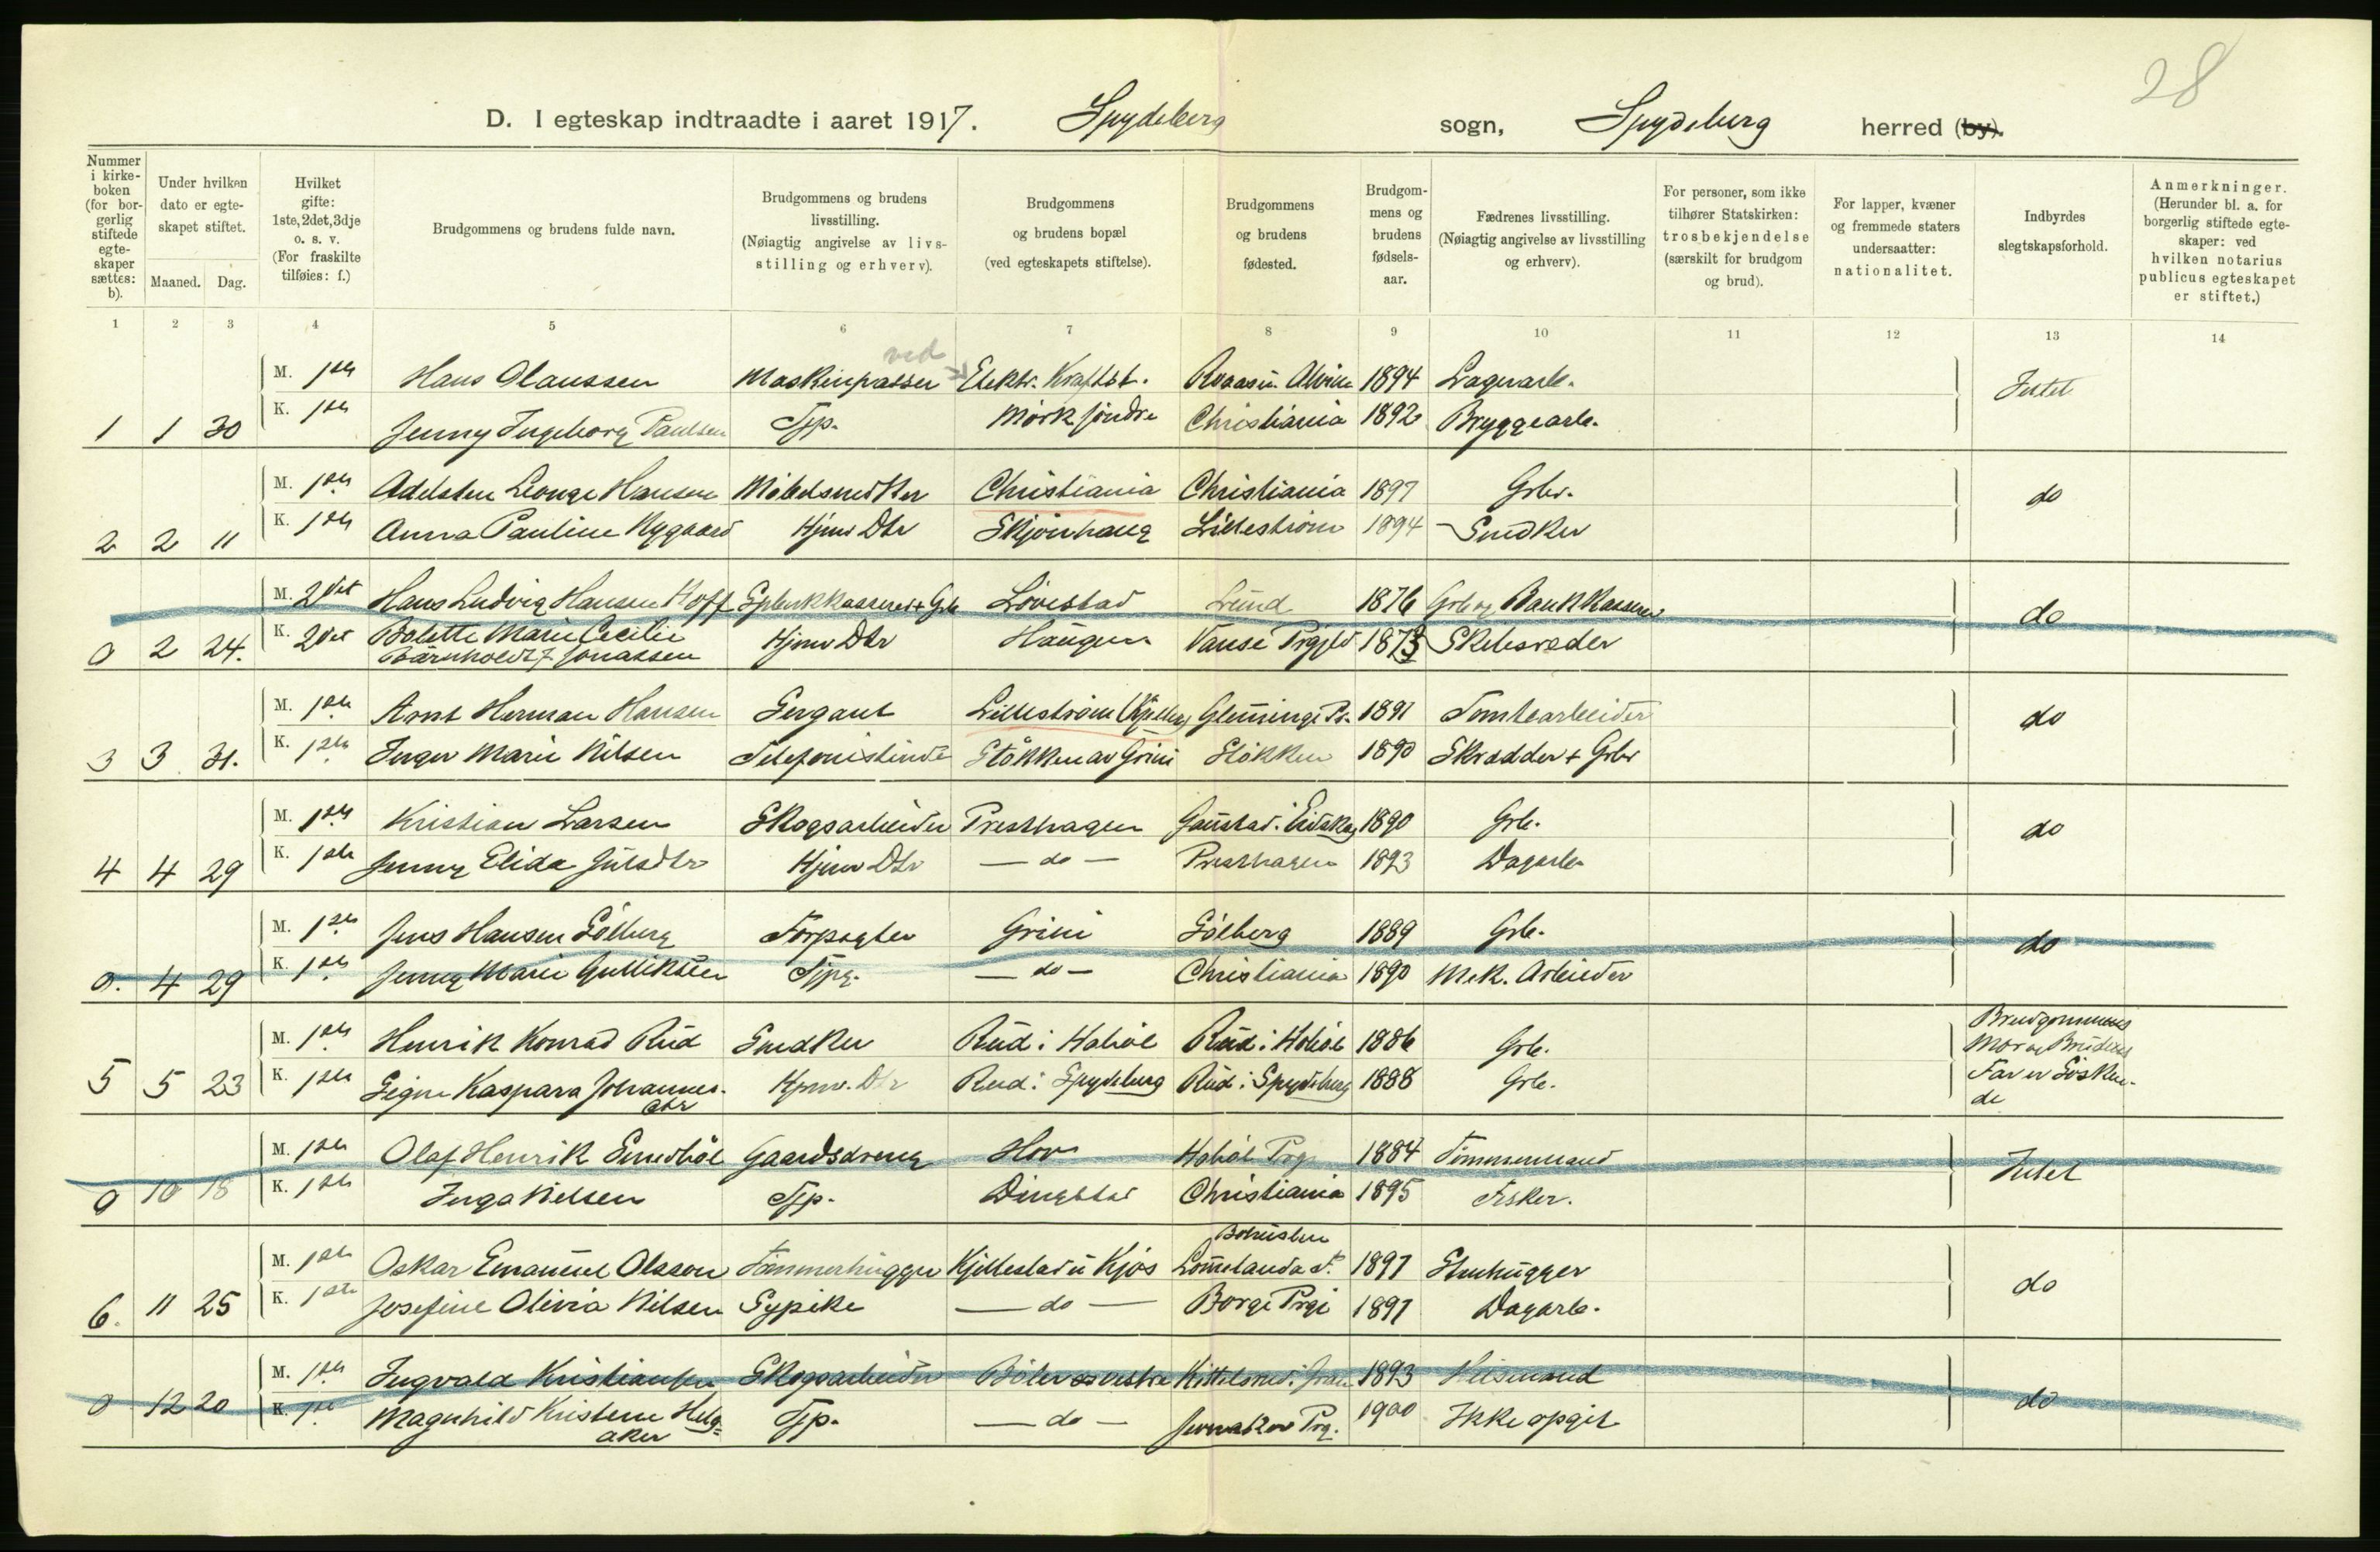 28
D. I egteskap indtraadte i aaret 1917. Spydeberg sogn, Spydeberg herred (by).
Nummer i kirkeboken (for borgerlig stiftede egteskaper sættes: b).
Under hvilken dato er egteskapet stiftet.
Maaned. Dag.
Hvilket gifte: 1ste, 2det, 3dje o. s. v. (For fraskilte tilføies: f.)
Brudgommens og brudens fulde navn.
Brudgommens og brudens livsstilling. (Nøiagtig angivelse av livsstilling og erhverv).
Brudgommens og brudens bopæl (ved egteskapets stiftelse).
Brudgommens og brudens fødested.
Brudgommens og brudens fødselsaar.
Fædrenes livsstilling. (Nøiagtig angivelse av livsstilling og erhverv).
For personer, som ikke tilhører Statskirken: trosbekjendelse (særskilt for brudgom og brud).
For lapper, kvæner og fremmede staters undersaatter: nationalitet.
Indbyrdes slegtskapsforhold.
Anmerkninger. (Herunder bl. a. for borgerlig stiftede egteskaper: ved hvilken notarius publicus egteskapet er stiftet.)
1 2 3 4 5 6 7 8 9 10 11 12 13 14
ved
M. 1ste Hans Olaussen Maskinpasser Elektr. Kraftst. 1894 Intet
1 1 30 K. 1ste Jenny Ingeborg Paulsen Tjp. Mörk söndre Christiania 1892 Bryggearb.
M. 1ste Adelsten Leonge Hansen Möbelsnedker Christiania Christiania 1897 Gbr. do
2 2 11 K. 1ste Anna Pauline Nygaard Hjmv Dtr Skjönhaug Lilleström 1894 Snedker
M. 2det Hans Ludvig Hansen Hoff Spbnkkasserer + Grb Lövestad Lund 1876 Grb og Bankkasserer do
0 2 24. K. 2det Bolette Marie Cecilie Bärnholdt f Jonassen Hjmv Dtr Haugen Vanse Prgjld 1873 Skibsreder
M. 1ste Arnt Herman Hansen Sergant Lilleström Glemminge Pr. 1891 Tomtearbeider do
3 3 31. K. 1ste Inger Marie Nilsen Telefonistinde Stökken av Grini Stökken 1890 Skrædder + Grbr
M. 1ste Kristian Larsen Skogsarbeider Presthagen Gaustad i Eidskog 1890 Grb. do
4 4 29 K. 1ste Jenny Elida Julsdtr Hjmv Dtr — do — Presthagen 1893 Dagarb.
M. 1ste Jens Hansen Solberg Forpagter Grini Solberg 1889 Grb. do
0. 4 29 K. 1ste Jenny Marie Gulliksen Tjpg. — do — Christiania 1890 Mek. Arbeider
M. 1ste Henrik Konrad Rud Snedker Rud i Hobøl Rud i Hobøl 1886 Grb. Brudgommens Mor og Brudens
5 5 23 K. 1ste Signe Kaspara Johannesdtr Hjmv. Dtr Rud i Spydeberg Rud i Spydeberg 1888 Grb. Far er Søskende
M. 1ste Olaf Henrik Gaardsdreng Hov Hobøl Prg 1884 Tömmermand Intet
0 10 18 K. 1ste Inga Nielsen Tjp. Dingstad Christiania 1895 Fisker.
Bohuslen
M. 1ste Oskar Emanuel Olsson Tömmerhugger Kjellestad u Kjos 1897 Stenhugger do
6. 11 25 K. 1ste Josefine Olivia Nilsen Sypike — do — Borge Prgj 1897 Dagarb.
M. 1ste Ingvald Kristiansen Skogsarbeider Böler vestre 1893 Husmand do
0 12 20 K. 1ste Magnhild Kristine Helgaker Tjp. — do — Jevnaker Prg. 1900 Ikke opgit